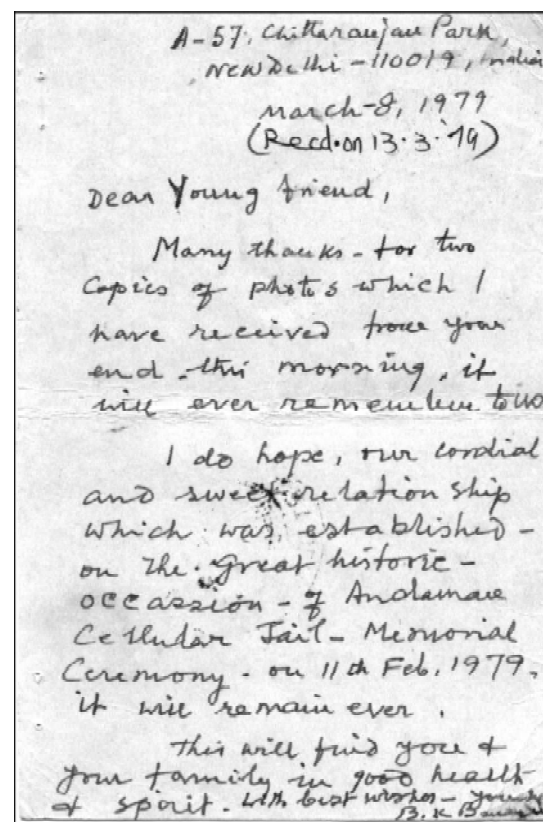 A-57, Chittaranjan Park,
New Delhi - 110019, India
March-8, 1979
(Recd. on 13.3.'79)
Dear Young friend,
Many thanks - for two
Copies of photos which I
have received from your
end this morning. it
will ever remember to us
I do hope, our cordial
and sweet relation ship
which was, established -
on the great historic -
occassion - of Andaman
Cellular Jail - Memorial
Ceremony - on 11th Feb. 1979.
it will remain ever.
This will find you &
your family in good health
& spirit. with best wishes -
B. K